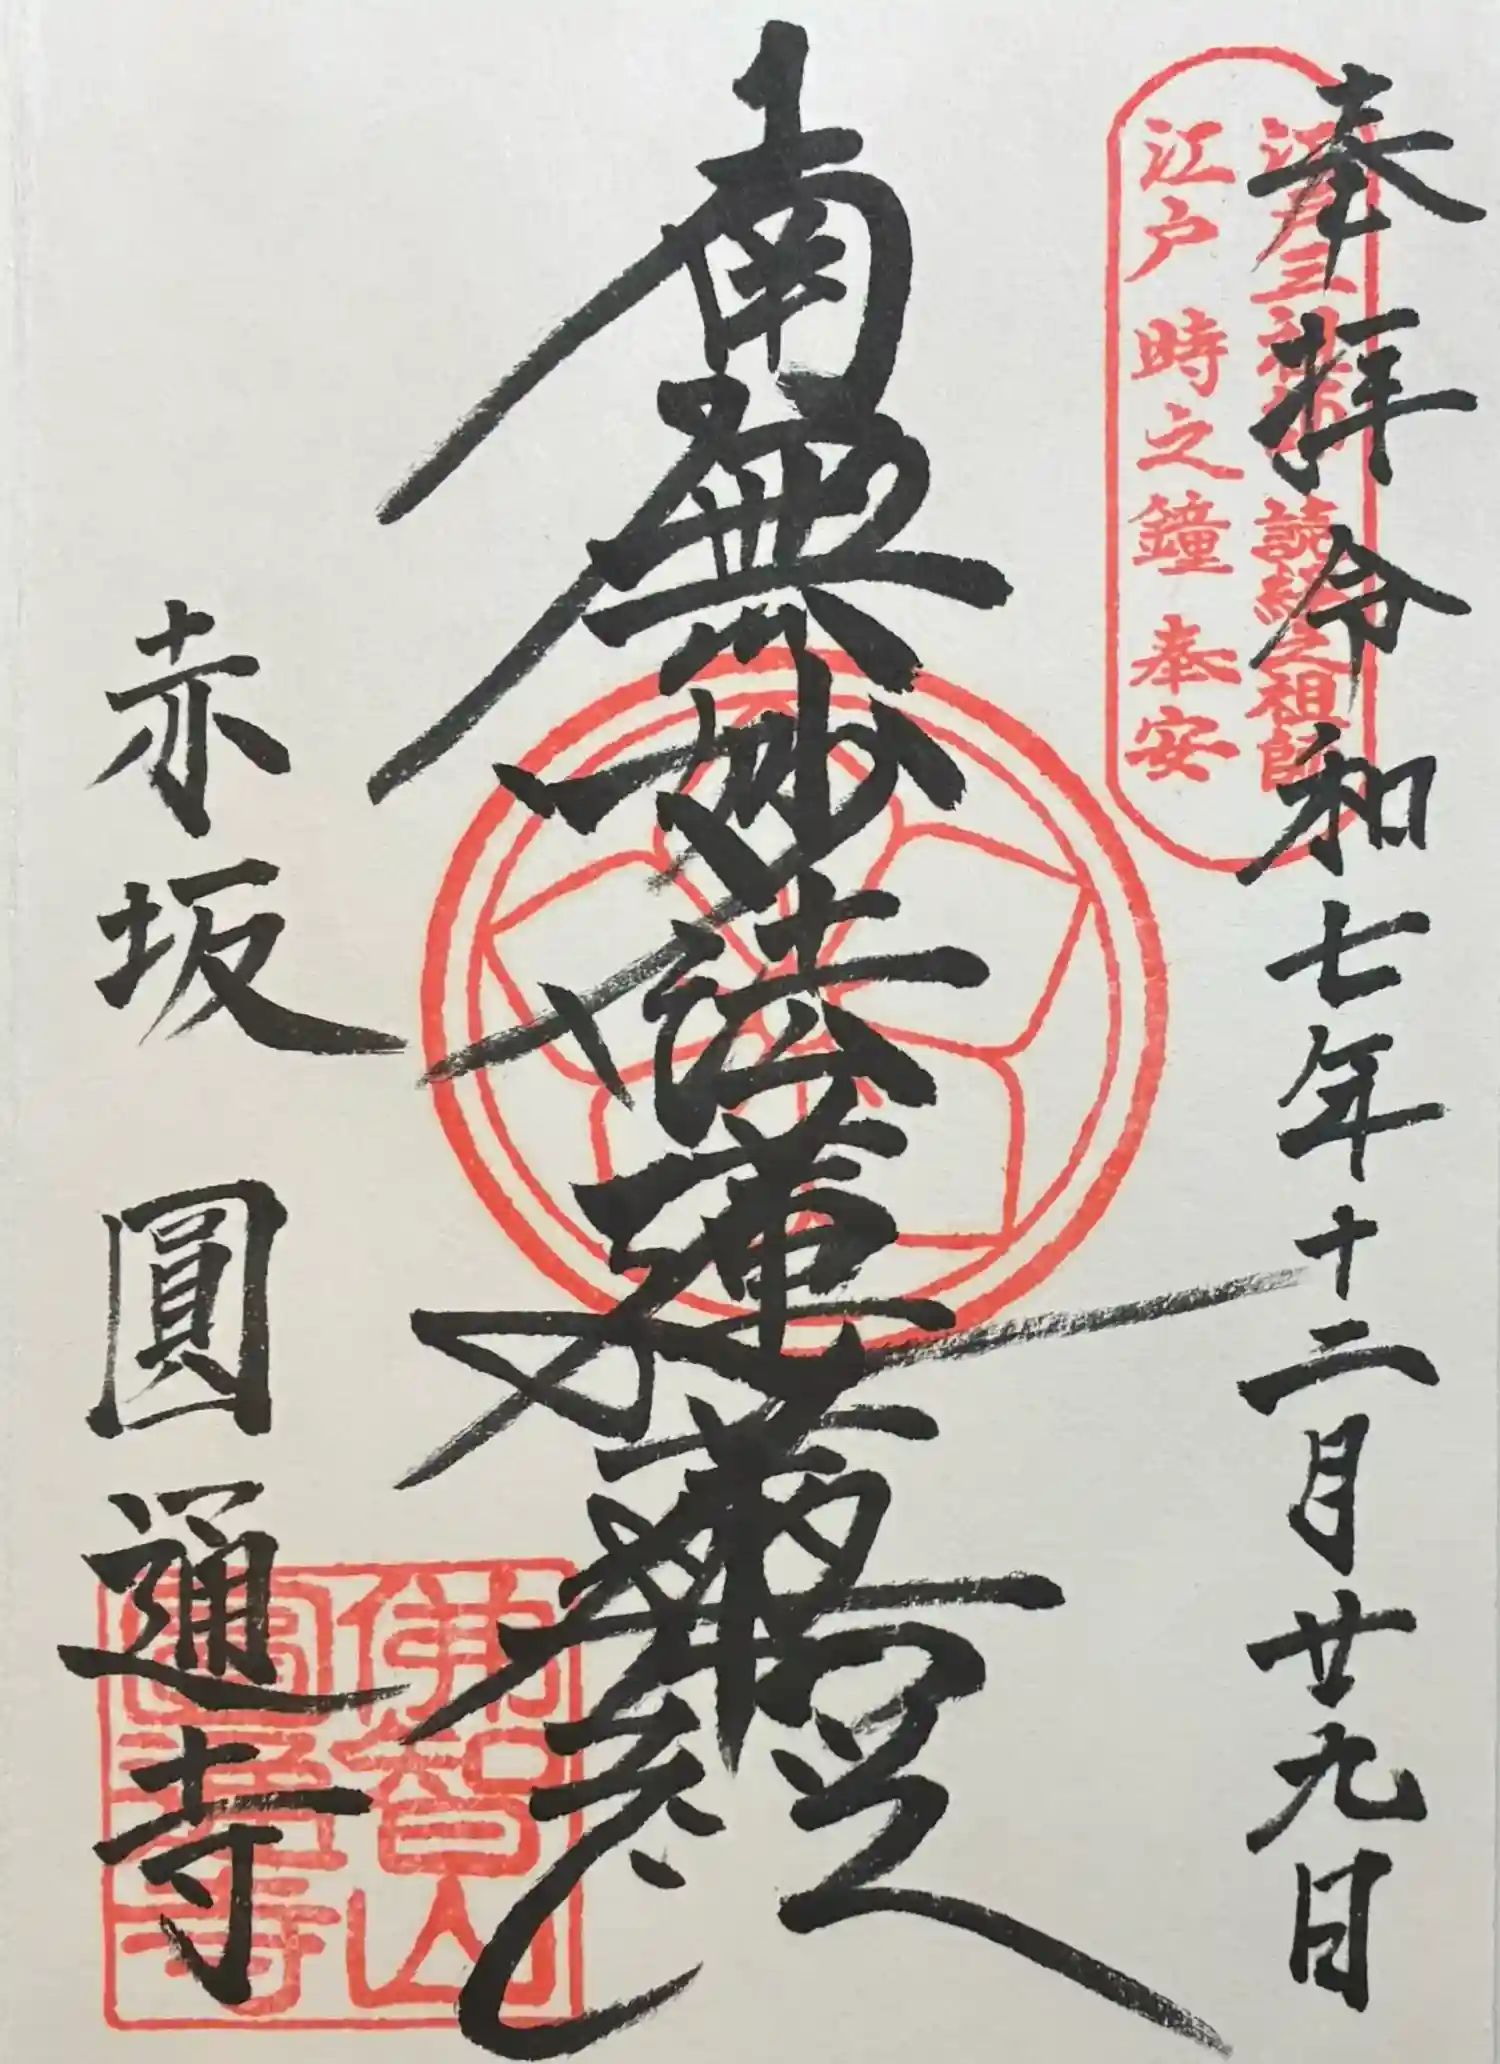 奉拝 令和七年十二月廿九日
江戸三祖師 読経之祖師
江戸 時之鐘 奉安
南無妙法蓮華経
赤坂 圓通寺
佛智山
圓通寺